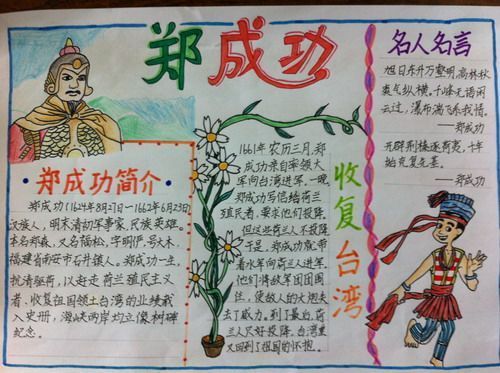 郑成功
郑成功简介
郑成功(1624年8月27日—1662年6月23日)
汉族人,明末清初军事家,民族英雄。
本名郑森,又名福松,字明俨,号大木,
福建省南安市石井镇人。郑成功一生,
抗清驱荷,以赶走荷兰殖民主义
者,收复祖国领土台湾的业绩载
入史册,海峡两岸均立像树碑
纪念。
1661年农历三月,郑
成功亲自率领大
军向台湾进军,一晚,
郑成功写信给荷兰
殖民者,要求他们投降,
但这些荷兰人不投降。
于是,郑成功就带
着水军向荷兰人进军。
他们将敌军团团围
住,使敌人的大炮失
去了威力。到了最后,荷
兰人只好投降。台湾重
又回到了祖国的怀抱。
收复台湾
名人名言
旭日东升万壑明,高林秋
爽气纵横。千峰无语闲
云过,瀑布湍飞系我情。
——郑成功
开辟荆榛逐荷夷,十年
始克复先基。
——郑成功